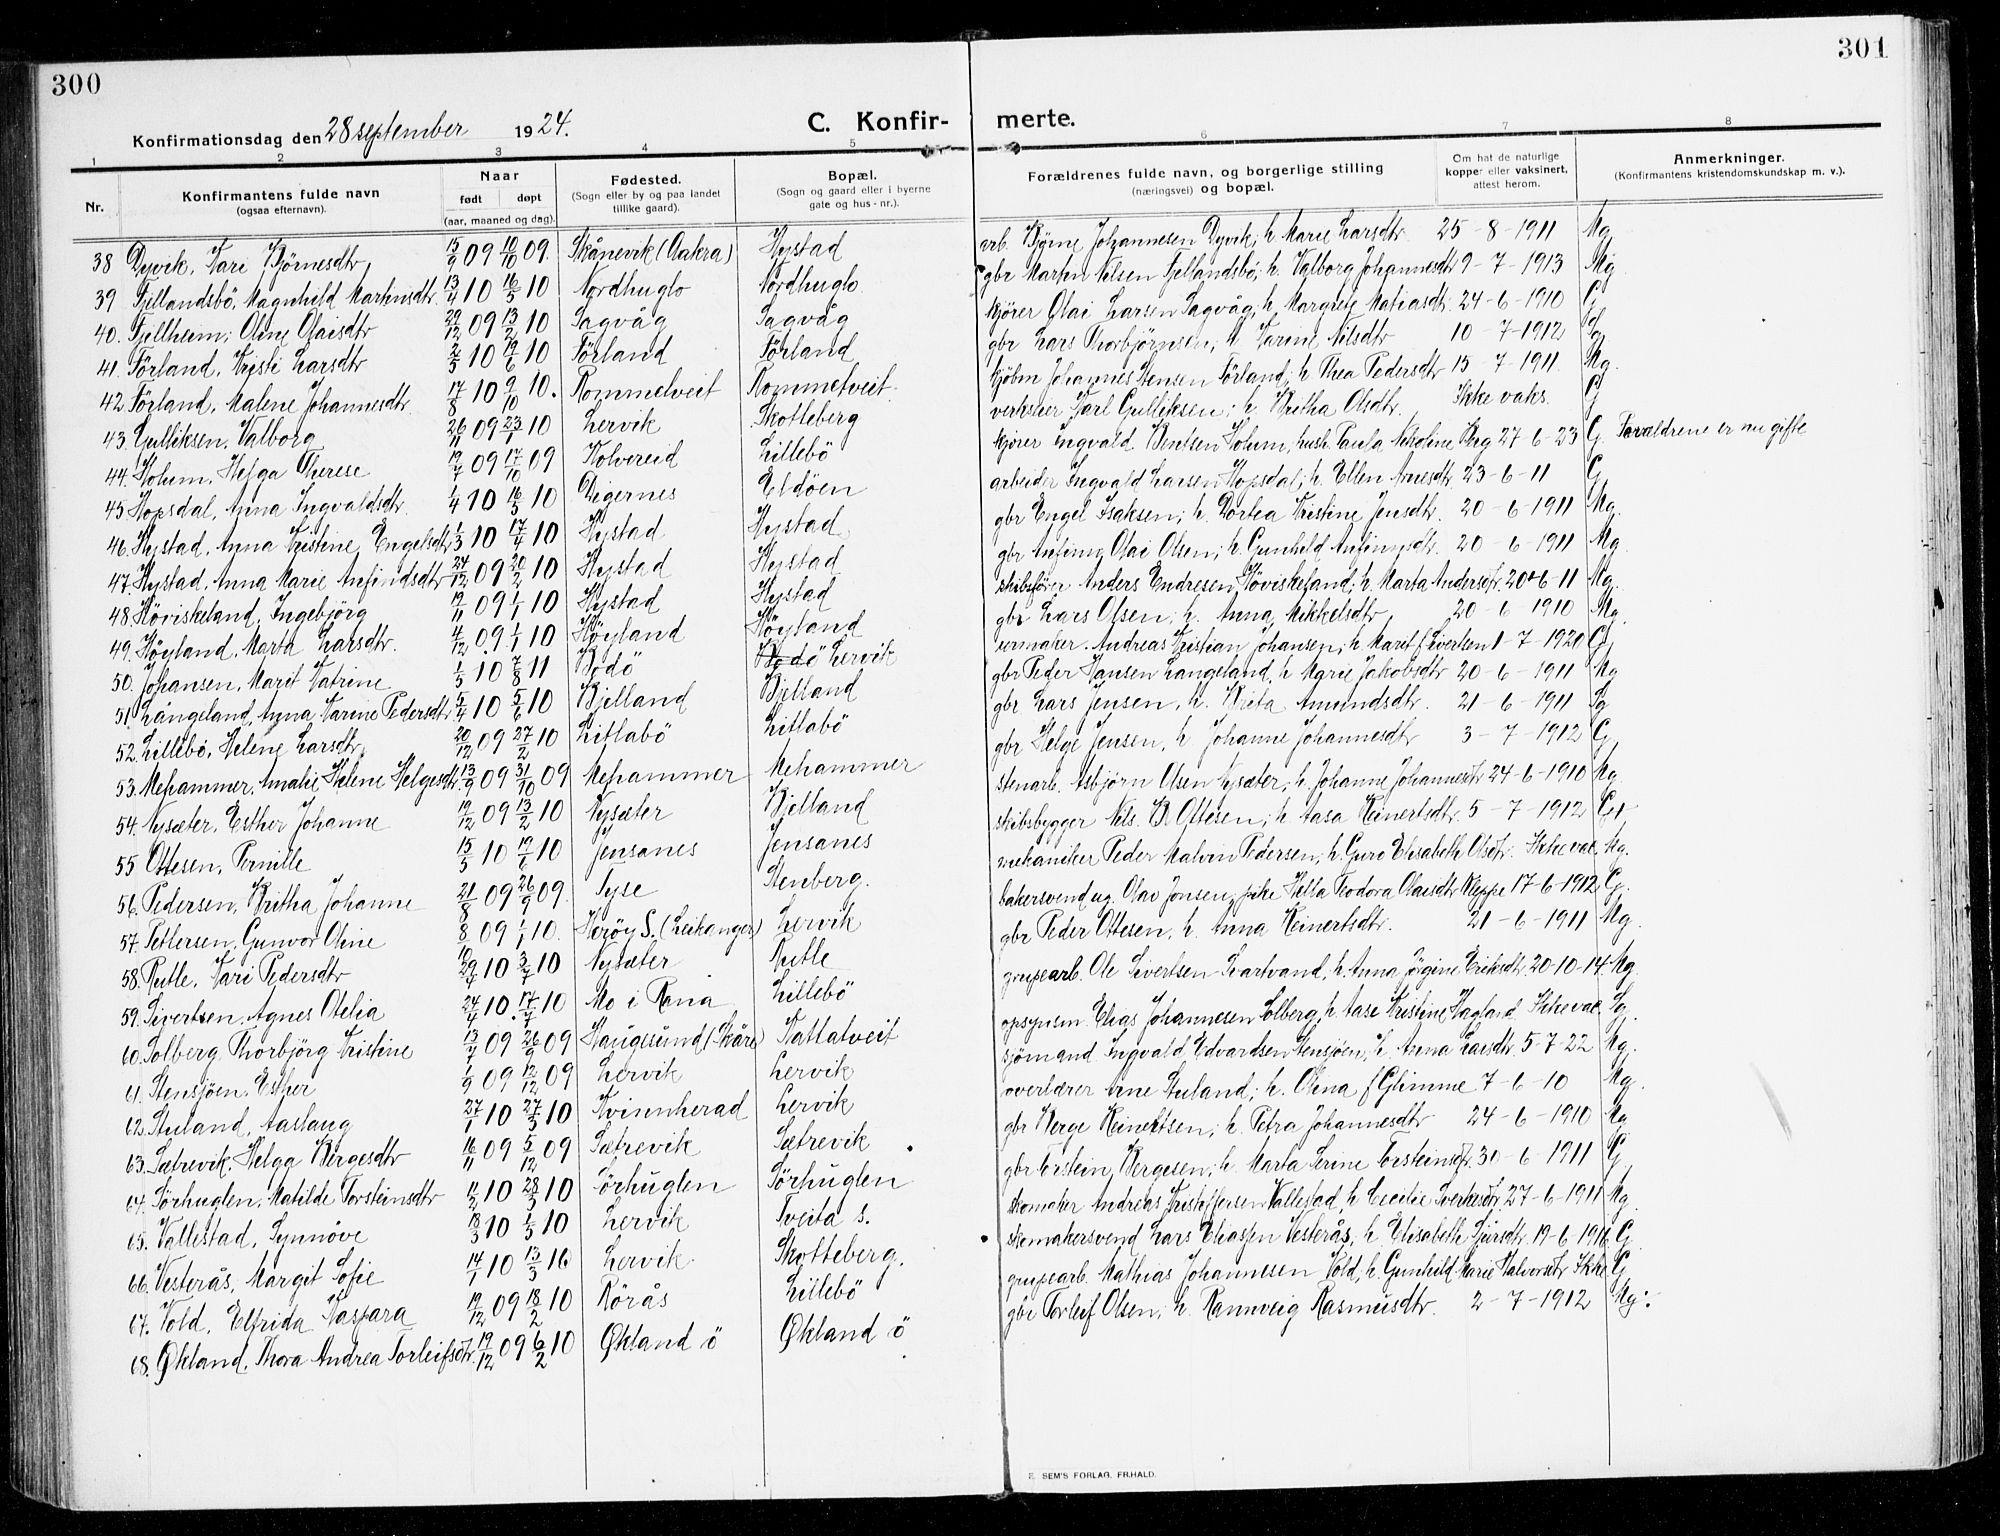 300
301
Konfirmationsdag den 28 september 1924.
C. Konfir- merte.
1 2 3 4 5 6 7 8
Nr. Konfirmantens fulde navn (ogsaa efternavn). Naar født døpt (aar, maaned og dag). Fødested. (Sogn eller by og paa landet tillike gaard). Bopæl. (Sogn og gaard eller i byerne gate og hus-nr.). Forældrenes fulde navn, og borgerlige stilling (næringsvei) og bopæl. Om hat de naturlige kopper eller vaksinert, attest herom. Anmerkninger. (Konfirmantens kristendomskundskap m. v.).
38 Dyvik, Kari Bjørnesdtr 15/9 09 10/10 09. Skånevik (Aakra) Hystad arb. Bjørne Johannesen Dyvik; h. Marie Larsdtr. 25-8-1911 Mg
39 Fjellandsbö, Magnhild Martinsdtr. 13/4 10 16/5 10 Nordhuglo Nordhuglo gbr Martin Nilsen Fjellandsbö; h. Valborg Johannesdtr 9-7-1913 Mg
40. Fjellheim; Oline Olaisdtr 29/12 09 13/2 10 Sagvåg Sagvåg kjörer Olai Larsen Sagvåg; h. Margrete Matiasdtr. 24-6-1910 G
41. Förland, Kristi Larsdtr 2/5 10 19/6 10 Förland Förland gbr Lars Thorbjörnsen; h. Karine Nilsdtr 10-7-1912 Sg
42. Förland, Malene Johannesdtr. 17/8 10 9/10 10. Rommetveit Rommetveit. kjöbm Johannes Stensen Förland; h Thea Pedersdtr 15-7-1911. Mg.
43. Gulliksen, Valborg 26/11 09 23/1 10 Lervik Skotteberg verkseier Karl Gulliksen; h. Britha Olsdtr. Ikke vaks. G
44. Holum, Helga Therese 19/7 09 17/10 09 Kolvereid Lillebö kjører Ingvald Bentsen Holum, hush. Paula Nikoline Berg 27-6-23 G. Foreldrene er nu gifte
45 Hopsdal, Anna Ingvaldsdtr. 1/4 10 16/5 10 Digernes Eldöen arbeider Ingvald Larsen Hopsdal; h. Ellen Arnesdtr 23-6-11 G
46. Hystad, Anna Kristine Engelsdtr 1/3 10 17/4 10 Hystad Hystad gbr Engel Isaksen; h. Dortea Kristine Jensdtr. 20-6-1911 Mg.
47. Hystad, Anna Marie Anfindsdtr 24/12 09 20/2 10 Hystad Hystad gbr Anfinn Olai Olsen; h. Gunhild Anfinnsdtr. 20-6-1911 Mg
48. Höviskeland, Ingebjörg 19/11 09 1/1 10 Hystad Hystad skibsförer Anders Endresen Höviskeland; h. Marta Andersdtr. 20-6-11 Mg.
49. Höyland, Marta Larsdtr. 4/12 09 1/1 10 Höyland Höyland gbr Lars Olsen; h. Anna Mikkelsdtr 20-6-1910 Mg.
50. Johansen, Marit Katrine 1/5 10 7/8 11 Bodö Bodö Lervik urmaker. Andreas Kristian Johansen; h. Maret f Sivertsen 1-7-1920 G
51 Långeland, Anna Karine Pedersdtr 5/4 10 5/6 10 Bjelland Bjelland gbr Peder Hansen Langeland, h. Marie Jakobsdtr 20-6-1911 Mg
52. Lillebö, Helene Larsdtr. 20/12 09 27/2 10 Litlabö Litlabö gbr Lars Jensen, h. Brita Amundsdtr. 21-6-1911 Sg
53. Mehammer, Amalie Helene Helgesdtr. 13/9 09 31/10 09 Mehammer Mehammer gbr Helge Jensen, h Johanne Johannesdtr 3-7-1912 G
54. Nysæter, Esther Johanne 19/12 09 13/2 10 Nysæter Bjelland stenarb. Asbjörn Olsen Nysæter, h. Johanne Johannesdtr 24-6-1910 Mg.
55 Ottesen, Pernille 15/5 10 19/6 10 Jensanes Jensanes skibsbygger Nils B Ottesen; h. Aasa Reinertsdtr. 5-7-1912 G
56. Pedersen, Britha Johanne 21/8 09 26/9 09. Tyse Stenberg. mekaniker Peder Malvin Pedersen; h. Guro Elisabeth Olsdtr. Ikke vac. Mg.
57. Pettersen, Gunvor Oline 8/10 09 1/1 10. Heröy S. (Leikanger) Lervik bakersvend ug. Olav Jonsen, pike Hella Teodora Olaisdtr Kleppe 17-6-1912 G.
58. Rutle, Kari Pedersdtr 29/4 10 3/7 10 Nysæter Rutle gbr Peder Ottesen, h. Anna Reinertsdtr. 21-6-1911 Mg.
59. Sivertsen, Agnes Otelia 24/4 10. 17/7 10 Mo i Rana Lillebö grupearb. Ole Sivertsen Svartvand, h. Anna Jörgine Eriksdtr. 20-10-14 Mg.
60. Solberg, Thorbjörg Kristine 13/7 09 26/9 09 Haugesund (Skåre) Kattatveit opsynsm. Elias Johannesen Solberg, h. Aase Kristine Hagland Ikke vac. Sg.
61. Stensjöen, Esther 1/9 09 12/12 09 Lervik Lervik sjömand Ingvald Edvardsen Stensjöen; h. Anna Larsdtr. 5-7-22 Mg.
62. Stuland, Aaslaug 27/1 10 27/3 10 Kvinnherad Lervik overlærer Arne Stuland; h. Olina f Glimme 7-6-10 Mg.
63. Sætrevik, Helga Bergesdtr 16/11 09 5/12 09 Sætrevik Sætrevik gbr Berge Reinertsen; h. Petra Johannesdtr 24-6-1910 Mg
64. Sörhuglen, Matilde Torsteinsdtr 11/2 10 28/3 10 Sørhuglen Sörhuglen gbr Torstein Bergesen; h. Marta Serine Torsteinsdtr. 30-6-1911 G
65. Vallestad, Synnöve 18/3 10 1/5 10 Lervik Tveita s. skomaker Andreas Kristoffersen Vallestad, h. Cecilie Sverkesdtr 27-6-1911 Mg.
66. Vesterås, Margit Sofie 14/1 10 13/3 10 Lervik Skotteberg. skomakersvend Lars Eliassen Vesterås, h Elisabeth Sjursdtr. 19-6-1911 G.
67. Vold, Elfrida Kaspara 19/12 09 18/2 10 Rörås Lillebö grupearb. Mathias Johannesen Vold, h. Gunhild Marie Halvorsdtr Ikke G
68. Økland, Thora Andrea Torleifsdtr. 19/12 09 6/2 10 Økland ö Økland ö gbr Torleif Olsen; h. Rannveig Rasmusdtr. 2-7-1912 Mg.
E. SEM'S FORLAG. FR.HALD.